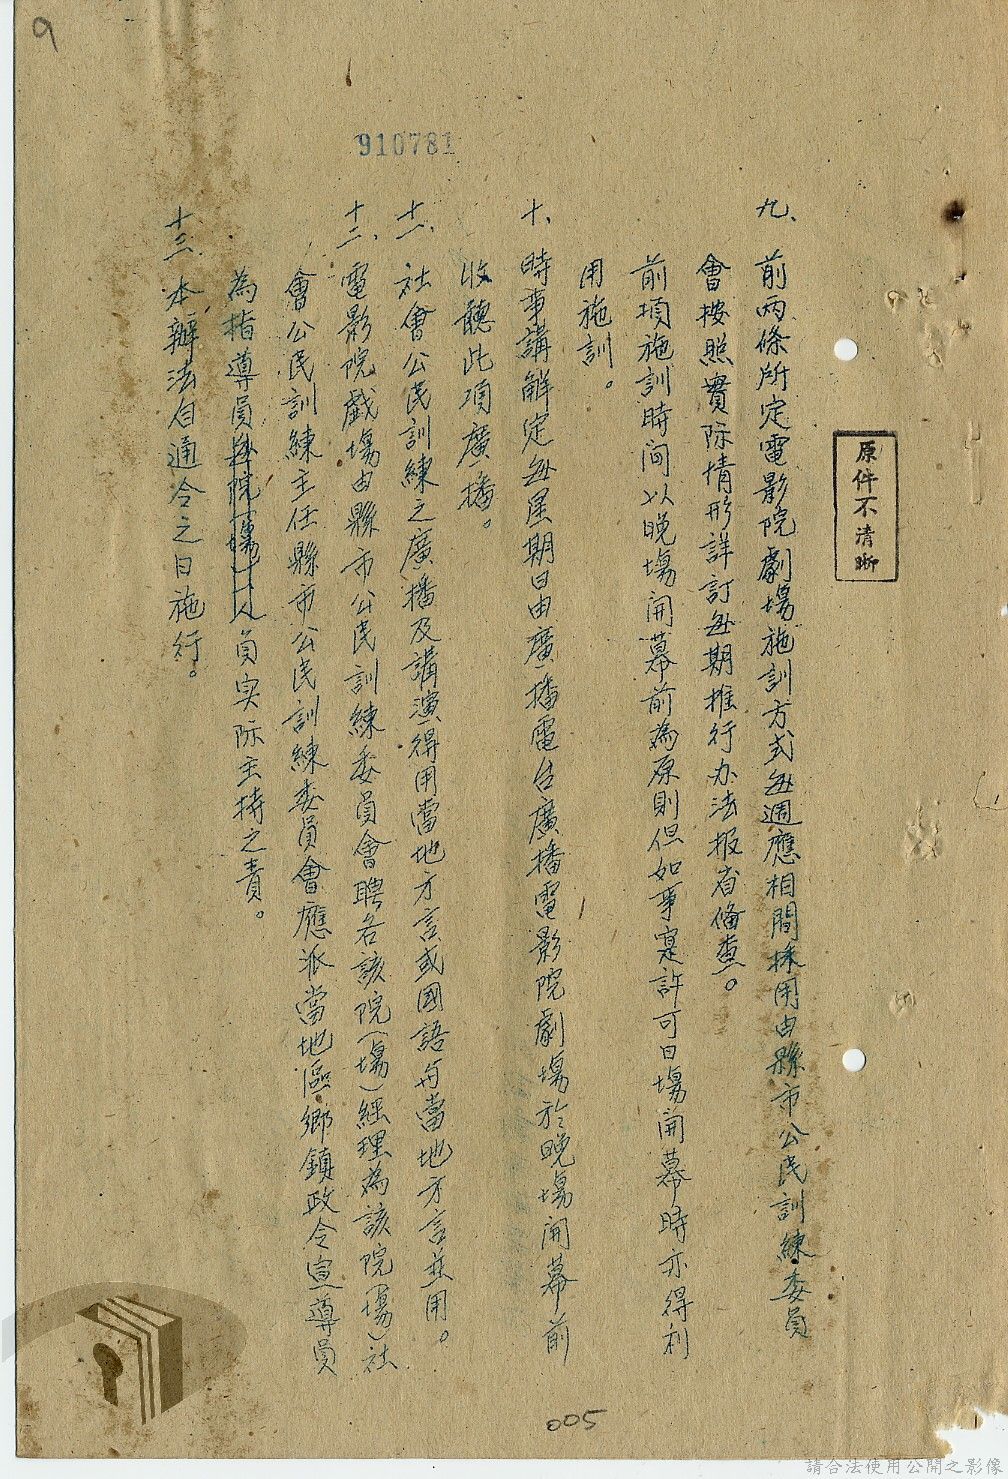 9
910781
原件不清晰
九、前兩條所定電影院劇場施訓方式每週應相間採用由縣市公民訓練委員
會按照實际情形詳訂每期推行办法报省俻查。
前項施訓時间以晚場開幕前為原則但如事寔許可日場開幕時亦得利
用施訓。
十、時事講解定每星期日由廣播電台廣播電影院劇場於晚場開幕前
收聽此項廣播。
十一、社會公民訓練之廣播及講演得用當地方言或國語与當地方言並用。
十二、電影院戲場由縣市公民訓練委員會聘各該院(場)經理為該院(場)社
會公民訓練主任縣市公民訓練委員會應派當地區鄉鎮政令宣導員
為指導員每院(場)一人負实际主持之責。
十三、本辦法自通令之日施行。
005
請合法使用公開之影像